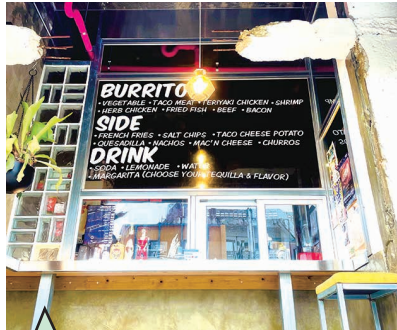 BURRITO
• VEGETABLE • TACO MEAT • TERIYAKI CHICKEN • SHRIMP
• HERB CHICKEN • FRIED FISH • BEEF • BACON
SIDE
• FRENCH FRIES • SALT CHIPS • TACO CHEESE POTATO
• QUESADILLA • NACHOS • MAC'N CHEESE • CHURROS
DRINK
• SODA • LEMONADE • WATER
• MARGARITA (CHOOSE YOUR TEQUILLA & FLAVOR)